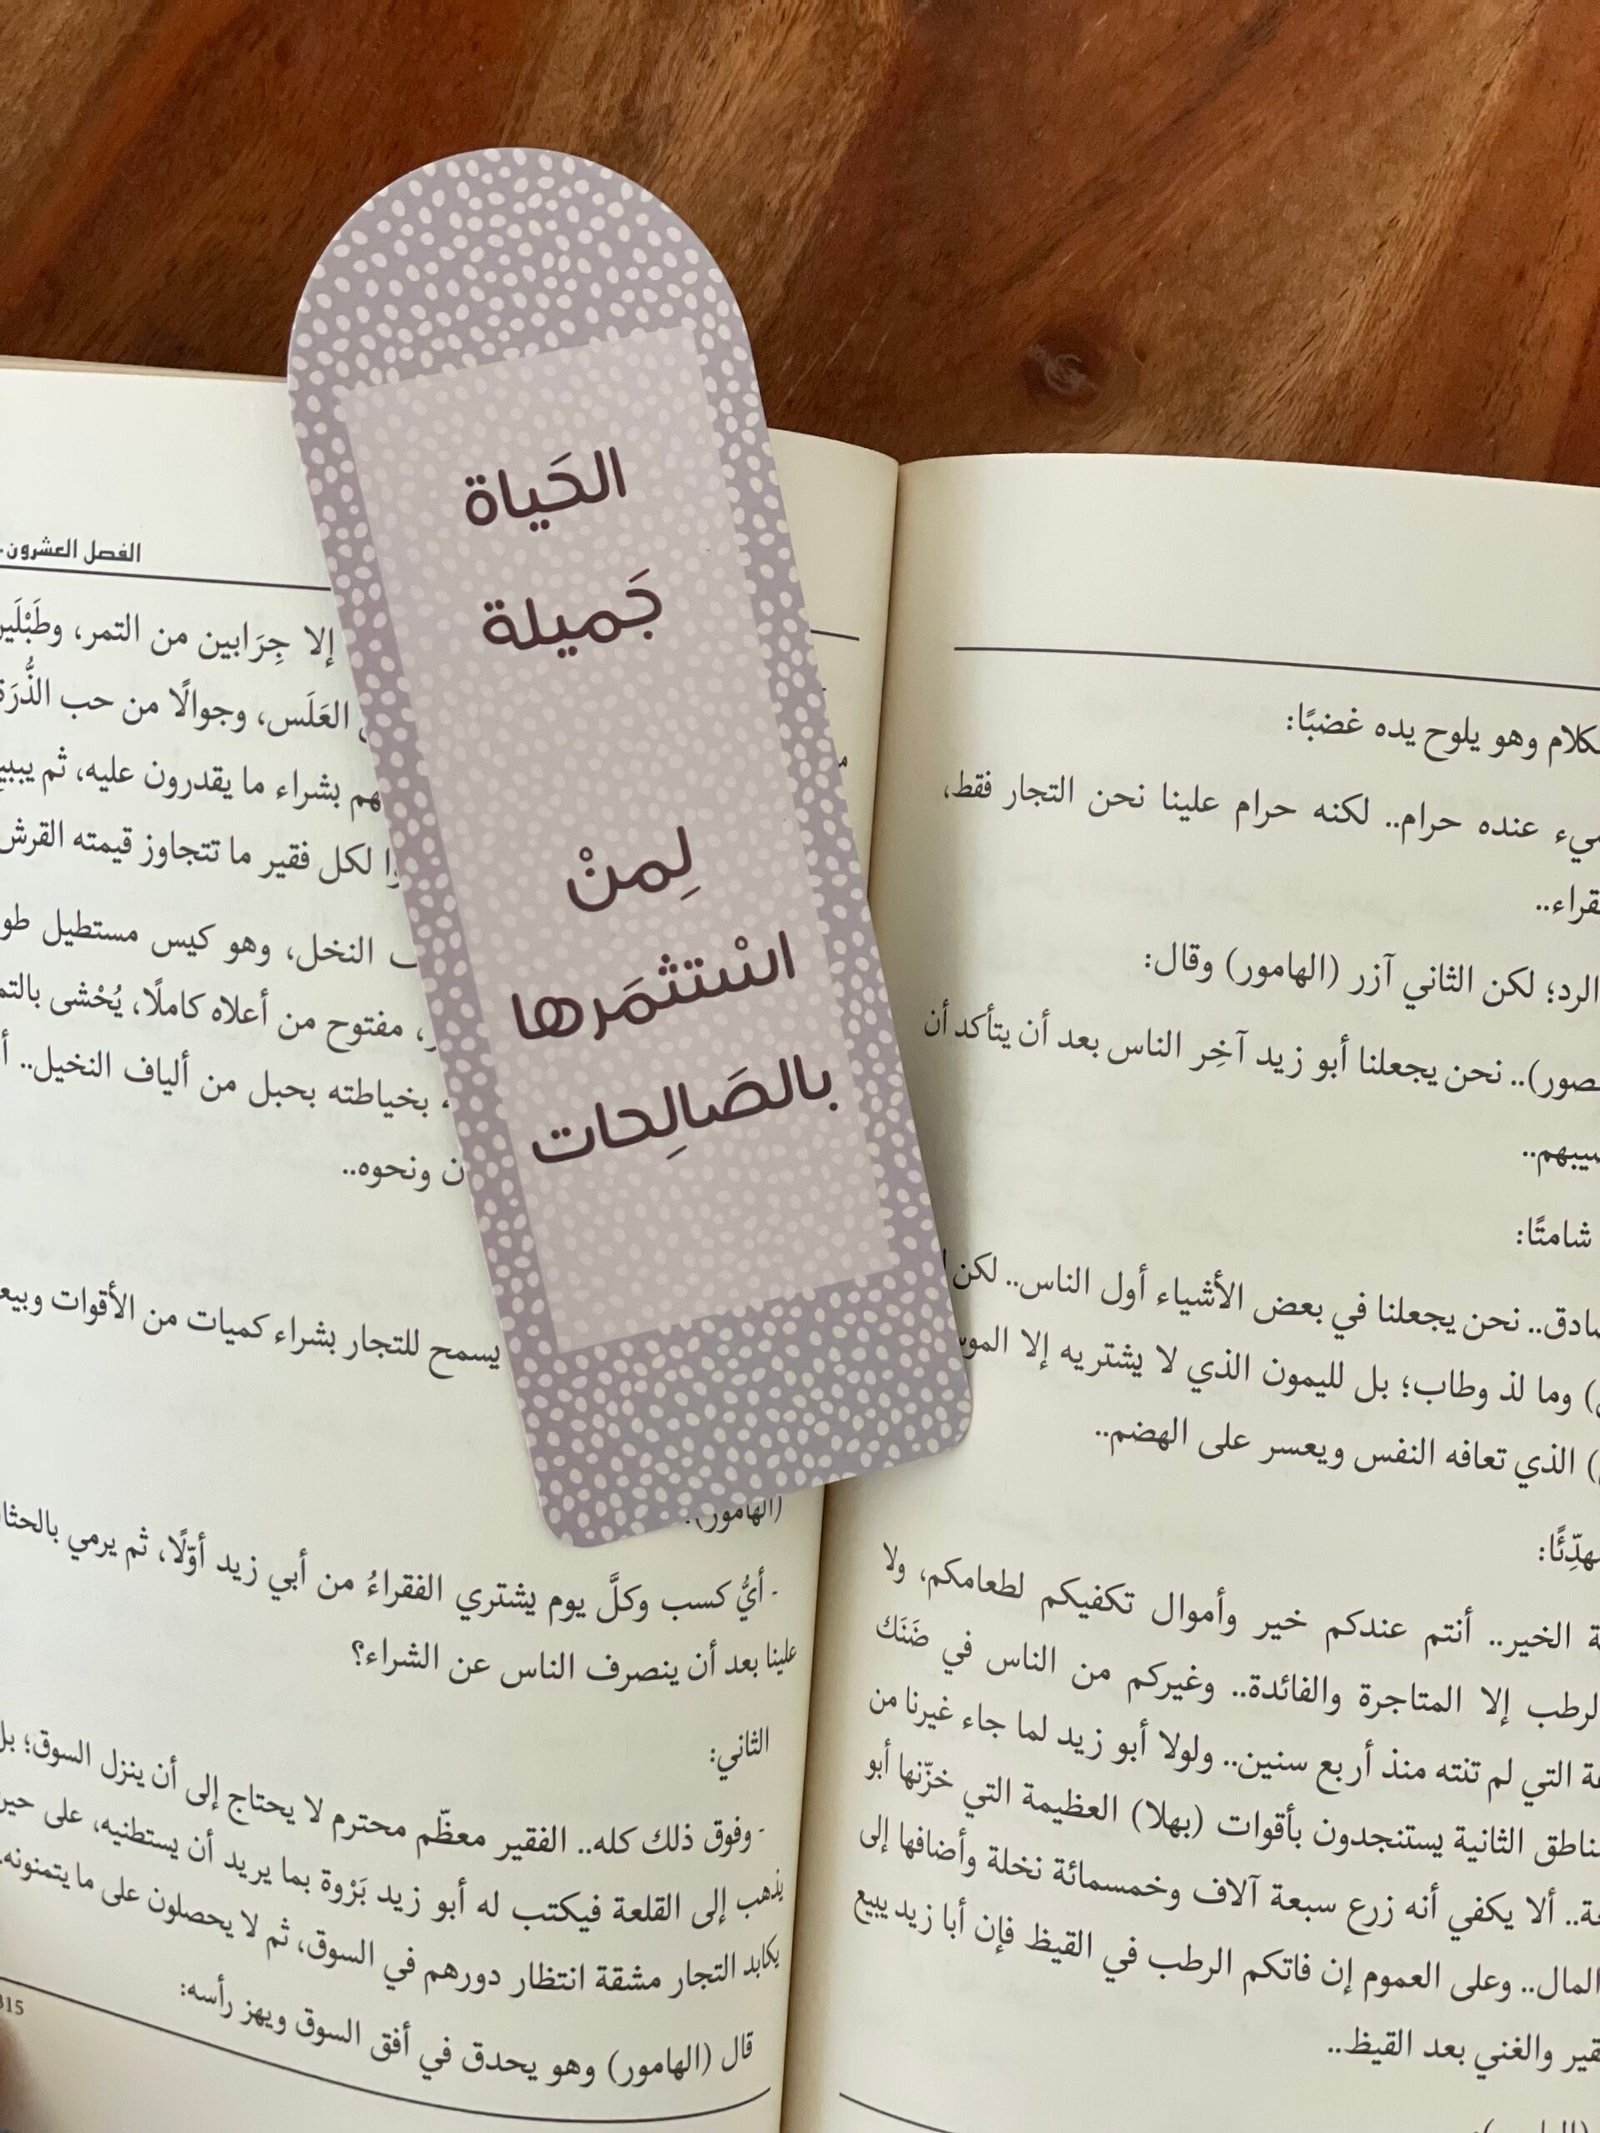 الحَياة
جَميلة
لِمنْ
اسْتثمَرها
بالصَالِحات
الفصل العشرون
إلا جِرَابين من التمر، وطَبْلَين
العَلَس، وجوالًا من حب الذُّرَة
هم بشراء ما يقدرون عليه، ثم يبيع
لكل فقير ما تتجاوز قيمته القرش
النخل، وهو كيس مستطيل
مفتوح من أعلاه كاملًا، يُحْشى بالتمر
، بخياطته بحبل من ألياف النخيل..
ونحوه..
يسمح للتجار بشراء كميات من الأقوات
(الهامور):
- أيُّ كسب وكلَّ يوم يشتري الفقراءُ من أبي زيد أوّلًا، ثم يرمي
علينا بعد أن ينصرف الناس عن الشراء؟
الثاني:
- وفوق ذلك كله.. الفقير معظّم محترم لا يحتاج إلى أن ينزل السوق؛ بل
يذهب إلى القلعة فيكتب له أبو زيد بَرْوة بما يريد أن يستطنيه، على حين
يكابد التجار مشقة انتظار دورهم في السوق، ثم لا يحصلون على ما يتمنونه.
قال (الهامور) وهو يحدق في أفق السوق ويهز رأسه:
315
وهو يلوح يده غضبًا:
عنده حرام.. لكنه حرام علينا نحن التجار فقط،
الرد؛ لكن الثاني آزر (الهامور) وقال:
نحن يجعلنا أبو زيد آخِر الناس بعد أن يتأكد أن
شامتًا:
نحن يجعلنا في بعض الأشياء أول الناس.. لكن
وما لذ وطاب؛ بل لليمون الذي لا يشتريه إلا
الذي تعافه النفس ويعسر على الهضم..
الخير.. أنتم عندكم خير وأموال تكفيكم لطعامكم، ولا
إلا المتاجرة والفائدة.. وغيركم من الناس في ضَنَك
التي لم تنته منذ أربع سنين.. ولولا أبو زيد لما جاء غيرنا من
الثانية يستنجدون بأقوات (بهلا) العظيمة التي خزّنها أبو
ألا يكفي أنه زرع سبعة آلاف وخمسمائة نخلة وأضافها إلى
المال.. وعلى العموم إن فاتكم الرطب في القيظ فإن أبا زيد يبيع
والغني بعد القيظ..